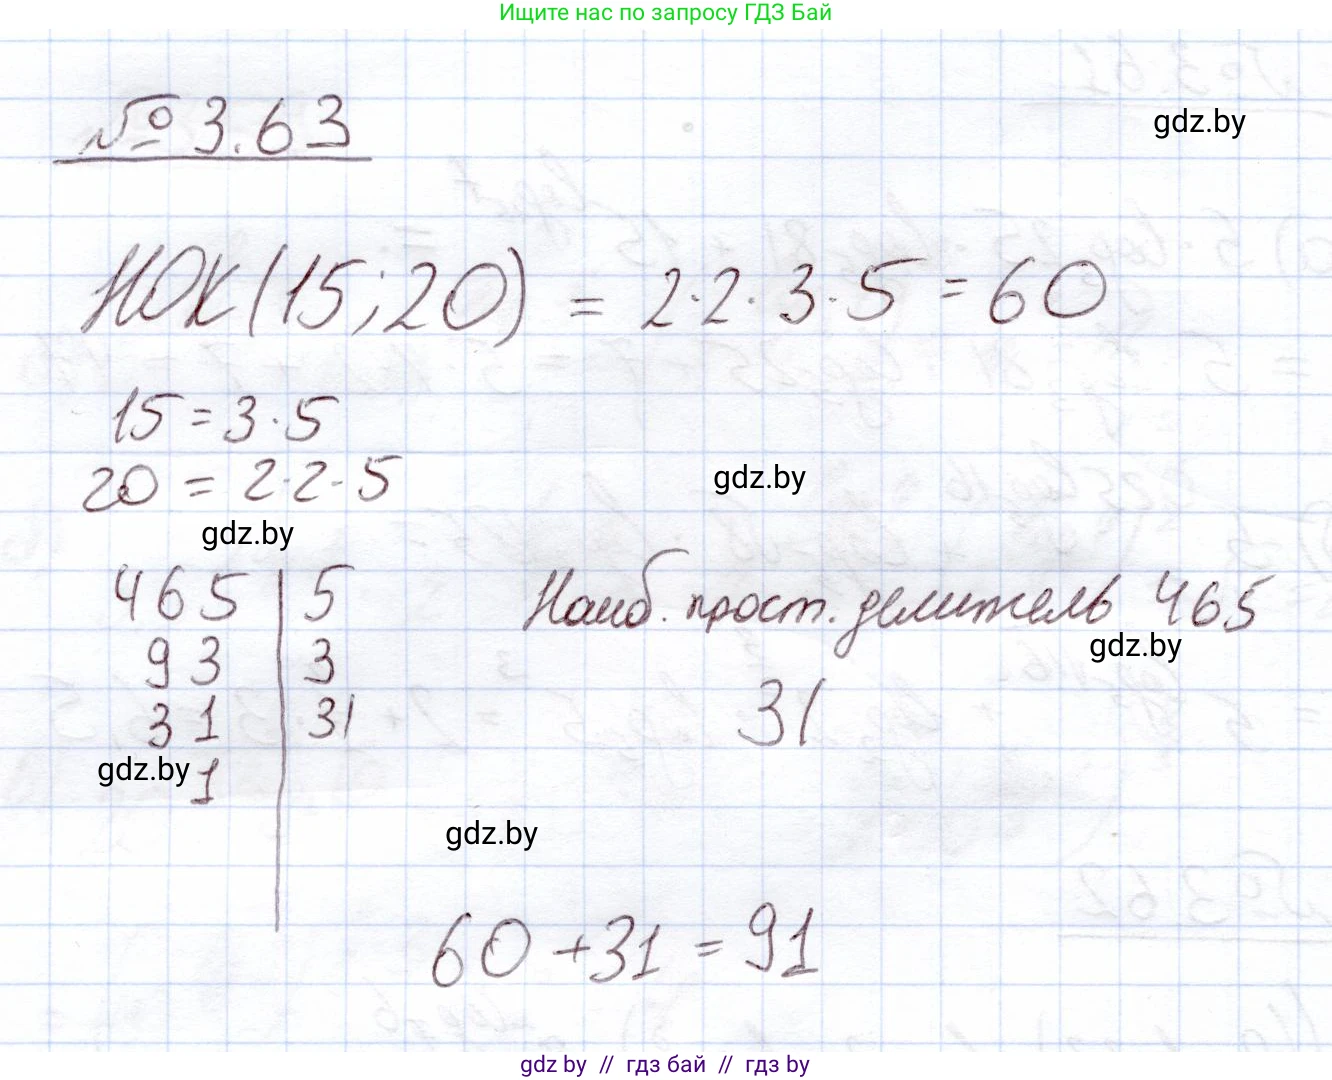 Ищите нас по запросу ГДЗ Бай
№ 3.63
gdz.by
НОК(15;20) = 2·2·3·5 = 60
15 = 3·5
20 = 2·2·5
gdz.by
gdz.by
465 | 5
93 | 3
31 | 31
1
Наиб. прост. делитель 465
gdz.by
31
gdz.by
gdz.by
60 + 31 = 91
gdz.by // гдз бай // гдз by